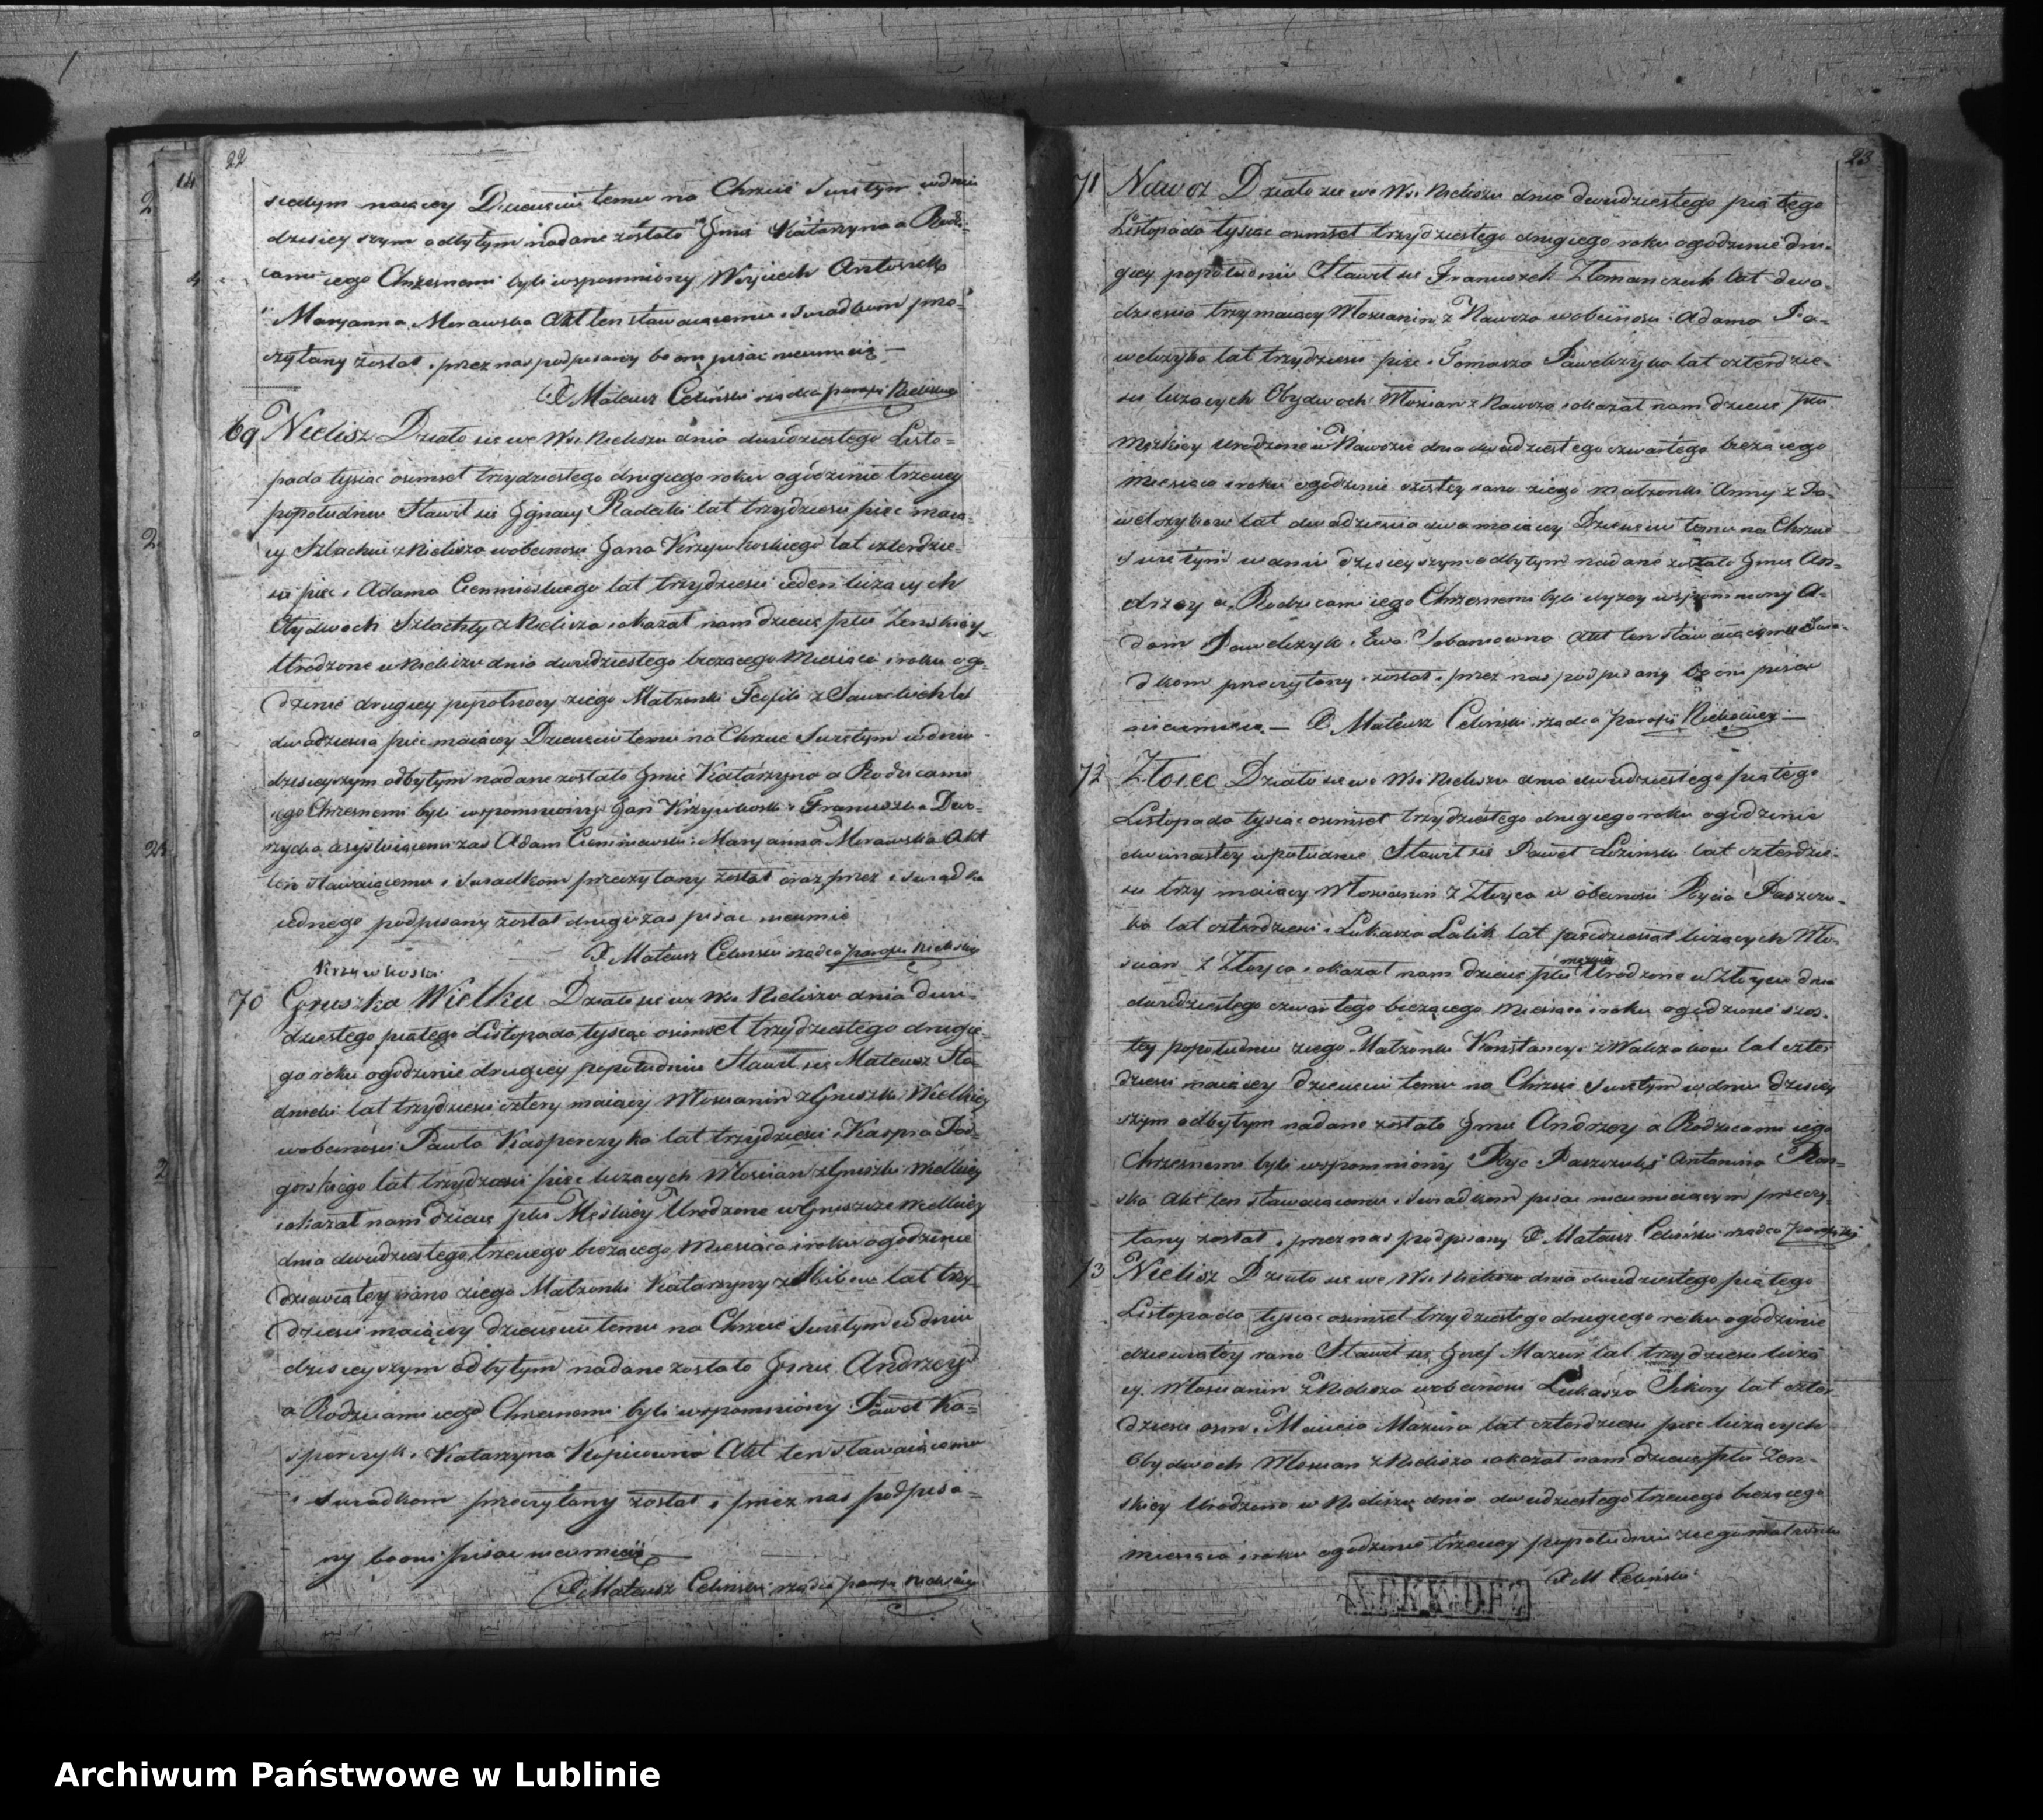 22
siedym maiący Dziecięciu temu na Chrzcie Świętym w dniu
dzisieyszym odbytym nadane zostało Jmie Katarzyna a Rodzi=
cami iego Chrzesnemi byli wspomniony Woyciech Antoszek
i Maryanna Morawska Akt ten stawaiącemu i Świadkom prze=
czytany został i przez nas podpisany bo oni pisać nieumieią
X Mateusz Celinski rządca parafii Nieliskiey
69 Nielisz Działo się we Wsi Nieliszu dnia dwudziestego Listo=
pada tysiąc osimset trzydziestego drugiego roku o godzinie trzeciey
popołudniu Stawił się Jgnacy Radecki lat trzydzieści pięć maią=
cy Szlachcic z Nielisza w obecności Jana Krzywkoskiego lat czterdzie=
ści pięć i Adama Cieniewskiego lat trzydzieści ieden liczących
Obydwoch Szlachty z Nielisza i okazał nam dziecie płci Zenskiey
Urodzone w Nieliszu dnia dwudziestego bieżącego Miesiąca i roku o go=
dzinie drugiey popołnocy z iego Małżonki Teofili z Sawickich lat
dwadzieścia pięć maiącey Dziecięciu temu na Chrzcie Świętym w dniu
dzisieyszym odbytym nadane zostało Jmie Katarzyna a Rodzicami
iego Chrzesnemi byli wspomniony Jan Krzywkoski i Franciszka
asystuiącemi zaś Adam i Maryanna Morawska Akt
ten stawaiącemu i Świadkom przeczytany został oraz przez Świadka
iednego podpisany został drugi zaś pisać nieumie
X Mateusz Celinski rządca parafii Nieliskiey
Krzywkoski
70 Gruszka Wielka Działo się we Wsi Nieliszu dnia dwu=
dziestego piątego Listopada tysiąc osimset trzydziestego drugie=
go roku o godzinie drugiey popołudniu Stawił się Mateusz Sta=
dnicki lat trzydzieści cztery maiący Włościanin z Gruszki Wielkiey
w obecności Pawła Kasperczyka lat trzydzieści i Kaspra Pod=
gorskiego lat trzydzieści pięć liczących Włościan z Gruszki Wielkiey
i okazał nam dziecie płci Męskiey Urodzone w Gruszce Wielkiey
dnia dwudziestego trzeciego bieżącego Miesiąca i roku o godzinie
dziewiątey rano z iego Małżonki Katarzyny z lat trzy=
dzieści maiącey dziecięciu temu na Chrzcie Świętym w dniu
dzisieyszym odbytym nadane zostało Jmie Andrzey
a Rodzicami iego Chrzesnemi byli wspomniony Paweł Ka=
sperczyk i Katarzyna Kopciowna Akt ten stawaiącemu
i Świadkom przeczytany został i przez nas podpisa=
ny bo oni pisać nieumieią
X Mateusz Celinski rządca parafii Nieliskiey
23
71 Nawoz Działo się we Wsi Nieliszu dnia dwudziestego piątego
Listopada tysiąc osimset trzydziestego drugiego roku o godzinie dru=
giey popołudniu Stawił się Franciszek Złomanczuk lat dwa=
dzieścia trzy maiący Włościanin z Nawoza w obecności Adama Pa=
welczyka lat trzydzieści pięć i Tomasza Pawelczyka lat czterdzie=
ści liczących Obydwoch Włościan z Nawoza i okazał nam dziecie płci
Męzkiey Urodzone w Nawozie dnia dwudziestego czwartego bieżącego
miesiąca i roku o godzinie szóstey rano z iego małżonki Anny z Pa=
welczykow lat dwadzieścia dwa maiącey Dziecięciu temu na Chrzcie
Świętym w dniu dzisieyszym odbytym nadane zostało Jmie An=
drzey a Rodzicami iego Chrzesnemi byli wyzey wspomniony A=
dam Pawelczyk i Ewa Sobaniowna Akt ten stawaiącemu i Świa=
dkom przeczytany został i przez nas podpisany bo oni pisać
nieumieią — X Mateusz Celinski rządca parafii Nieliskiey —
72 Złoiec Działo się we Wsi Nieliszu dnia dwudziestego piątego
Listopada tysiąc osimset trzydziestego drugiego roku o godzinie
dwunastey w południe Stawił się Paweł Lizinski lat czterdzie=
ści trzy maiący Włościanin z Złoyca w obecności Rycia Paszczu=
ka lat czterdzieści i Łukasza Lalik lat pięćdziesiąt liczących Wło=
ścian z Złoyca i okazał nam dziecie płci męzkiey Urodzone w Złoycu dnia
dwudziestego czwartego bieżącego Miesiąca i roku o godzinie szos=
tey popołudniu z iego Małżonki Konstancyi z Walczakow lat czter
dzieści maiącey dziecięciu temu na Chrzcie Świętym w dniu dzisiey
szym odbytym nadane zostało Jmie Andrzey a Rodzicami iego
Chrzesnemi byli wspomniony Ryc Paszczuk i Antonina
ska Akt ten stawaiącemu i Świadkom pisać nieumieiącym przeczy=
tany został i przez nas podpisany X Mateusz Celinski rządca parafii
73 Nielisz Działo się we Wsi Nieliszu dnia dwudziestego piątego
Listopada tysiąc osimset trzydziestego drugiego roku o godzinie
dziewiątey rano Stawił się Jozef Mazur lat trzydzieści liczą
cy Włościanin z Nielisza w obecności Łukasza Sikory lat czter=
dzieści osm i Macieia Mazura lat czterdzieści pięć liczących
Obydwoch Włościan z Nielisza i okazał nam dziecie płci Zen=
skiey Urodzone w Nieliszu dnia dwudziestego trzeciego bieżącego
miesiąca i roku o godzinie trzeciey popołudniu z iego małżonki
X M Celinski
Archiwum Państwowe w Lublinie